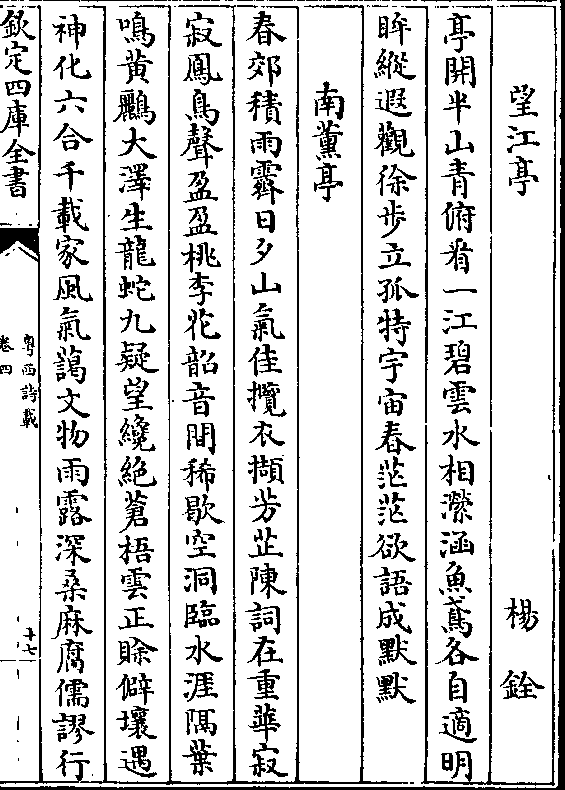 望江亭　楊銓
亭開半山青俯看一江碧雲水相瀠涵魚鳶各自適明
眸縱遐觀徐步立孤特宇宙春茫茫欲語成默默
南薰亭
春郊積雨霽日夕山氣佳攬衣擷芳芷陳詞在重華寂
寂鳳鳥聲盈盈桃李花韶音間稀歇空洞臨水涯隔葉
鳴黄鸝大澤生龍蛇九疑望纔絶蒼梧雲正賖僻壤遇
神化六合千載家風氣藹文物雨露深桑麻腐儒謬行
欽定四庫全書
粤西詩載
卷四
十七